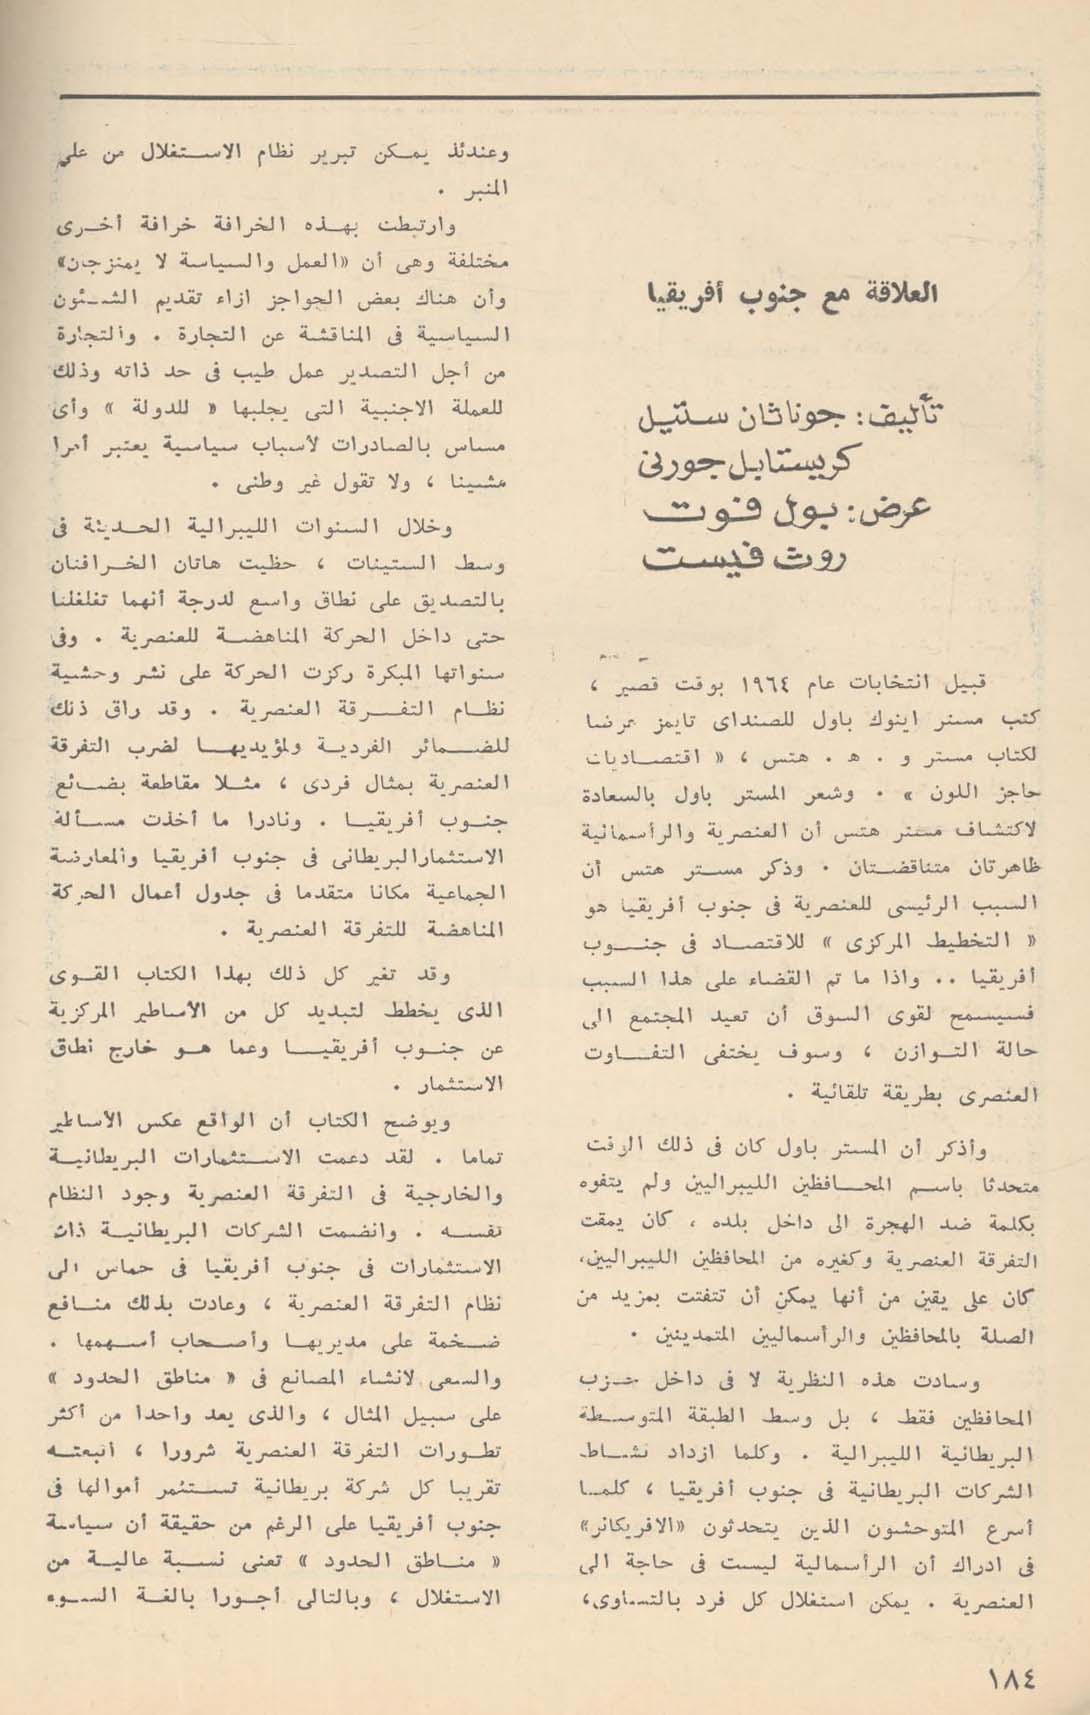 العلاقة مع جنوب أفريقيا
تأليف: جوناثان ستيل
كريستابل جورنى
عرض: بول فوت
روث فيست
قبيل انتخابات عام ١٩٦٤ بوقت قصير ،
كتب مستر اينوك باول للصنداى تايمز عرضا
لكتاب مستر و . ه . هتس ، « اقتصاديات
حاجز اللون » . وشعر المستر باول بالسعادة
لاكتشاف مستر هتس أن العنصرية والرأسمانية
ظاهرتان متناقضتان . وذكر مستر هتس أن
السبب الرئيسى للعنصرية فى جنوب أفريقيا هو
« التخطيط المركزى » للاقتصاد فى جنوب
أفريقيا .. واذا ما تم القضاء على هذا السبب
فسيسمح لقوى السوق أن تعيد المجتمع الى
حالة التوازن ، وسوف يختفى التفاوت
العنصرى بطريقة تلقائية .
وأذكر أن المستر باول كان فى ذلك الوقت
متحدثا باسم المحافظين الليبراليين ولم يتفوه
بكلمة ضد الهجرة الى داخل بلده ، كان يمقت
التفرقة العنصرية وكغيره من المحافظين الليبراليين،
كان على يقين من أنها يمكن أن تتفتت بمزيد من
الصلة بالمحافظين والرأسماليين المتمدينين .
وسادت هذه النظرية لا فى داخل حزب
المحافظين فقط ، بل وسط الطبقة المتوسطة
البريطانية الليبرالية . وكلما ازداد نشاط
الشركات البريطانية فى جنوب أفريقيا ، كلما
أسرع المتوحشون الذين يتحدثون «الافريكانر»
فى ادراك أن الرأسمالية ليست فى حاجة الى
العنصرية . يمكن استغلال كل فرد بالتساوى،
وعندئذ يمكن تبرير نظام الاستغلال من على
المنبر .
وارتبطت بهذه الخرافة خرافة أخرى
مختلفة وهى أن «العمل والسياسة لا يمتزجان»
وأن هناك بعض الحواجز ازاء تقديم الشئون
السياسية فى المناقشة عن التجارة . والتجارة
من أجل التصدير عمل طيب فى حد ذاته وذلك
للعملة الاجنبية التى يجلبها « للدولة » وأى
مساس بالصادرات لأسباب سياسية يعتبر أمرا
مشينا ، ولا تقول غير وطنى .
وخلال السنوات الليبرالية الحديثة فى
وسط الستينات ، حظيت هاتان الخرافتان
بالتصديق على نطاق واسع لدرجة أنهما تغلغلتا
حتى داخل الحركة المناهضة للعنصرية . وفى
سنواتها المبكرة ركزت الحركة على نشر وحشية
نظام التفرقة العنصرية . وقد راق ذلك
للضمائر الفردية ولمؤيديها لضرب التفرقة
العنصرية بمثال فردى ، مثلا مقاطعة بضائع
جنوب أفريقيا . ونادرا ما أخذت مسألة
الاستثمارالبريطانى فى جنوب أفريقيا والمعارضة
الجماعية مكانا متقدما فى جدول أعمال الحركة
المناهضة للتفرقة العنصرية .
وقد تغير كل ذلك بهذا الكتاب القوى
الذى يخطط لتبديد كل من الأساطير المركزية
عن جنوب أفريقيا وعما هو خارج نطاق
الاستثمار .
ويوضح الكتاب أن الواقع عكس الأساطير
تماما . لقد دعمت الاستثمارات البريطانية
والخارجية فى التفرقة العنصرية وجود النظام
نفسه . وانضمت الشركات البريطانية ذات
الاستثمارات فى جنوب أفريقيا فى حماس الى
نظام التفرقة العنصرية ، وعادت بذلك منافع
ضخمة على مديريها وأصحاب أسهمها .
والسعى لانشاء المصانع فى « مناطق الحدود »
على سبيل المثال ، والذى يعد واحدا من أكثر
تطورات التفرقة العنصرية شرورا ، اتبعته
تقريبا كل شركة بريطانية تستثمر أموالها فى
جنوب أفريقيا على الرغم من حقيقة أن سياسة
« مناطق الحدود » تعنى نسبة عالية من
الاستغلال ، وبالتالى أجورا بالغة السوء
١٨٤